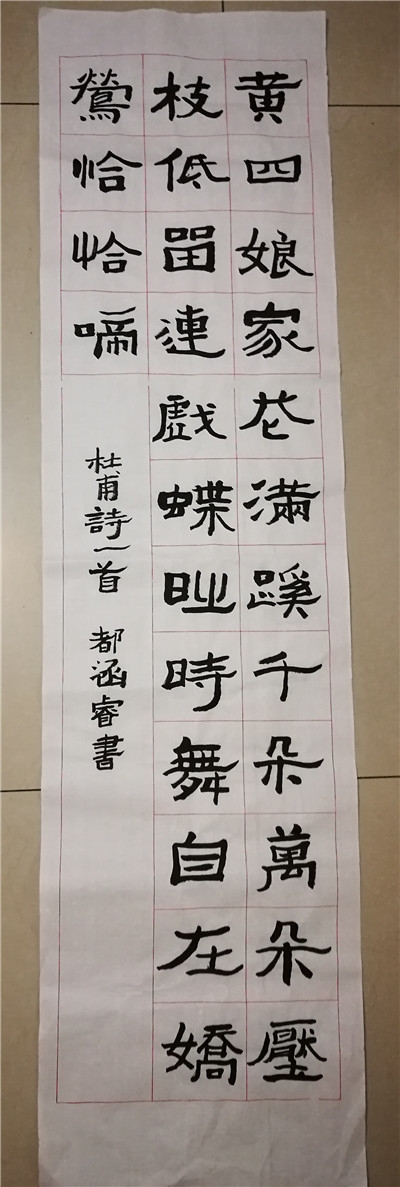 黄四娘家花滿蹊千朵萬朵壓
枝低畱連戲蝶旹時舞自在嬌
鶯恰恰啼
杜甫詩一首 都涵睿書